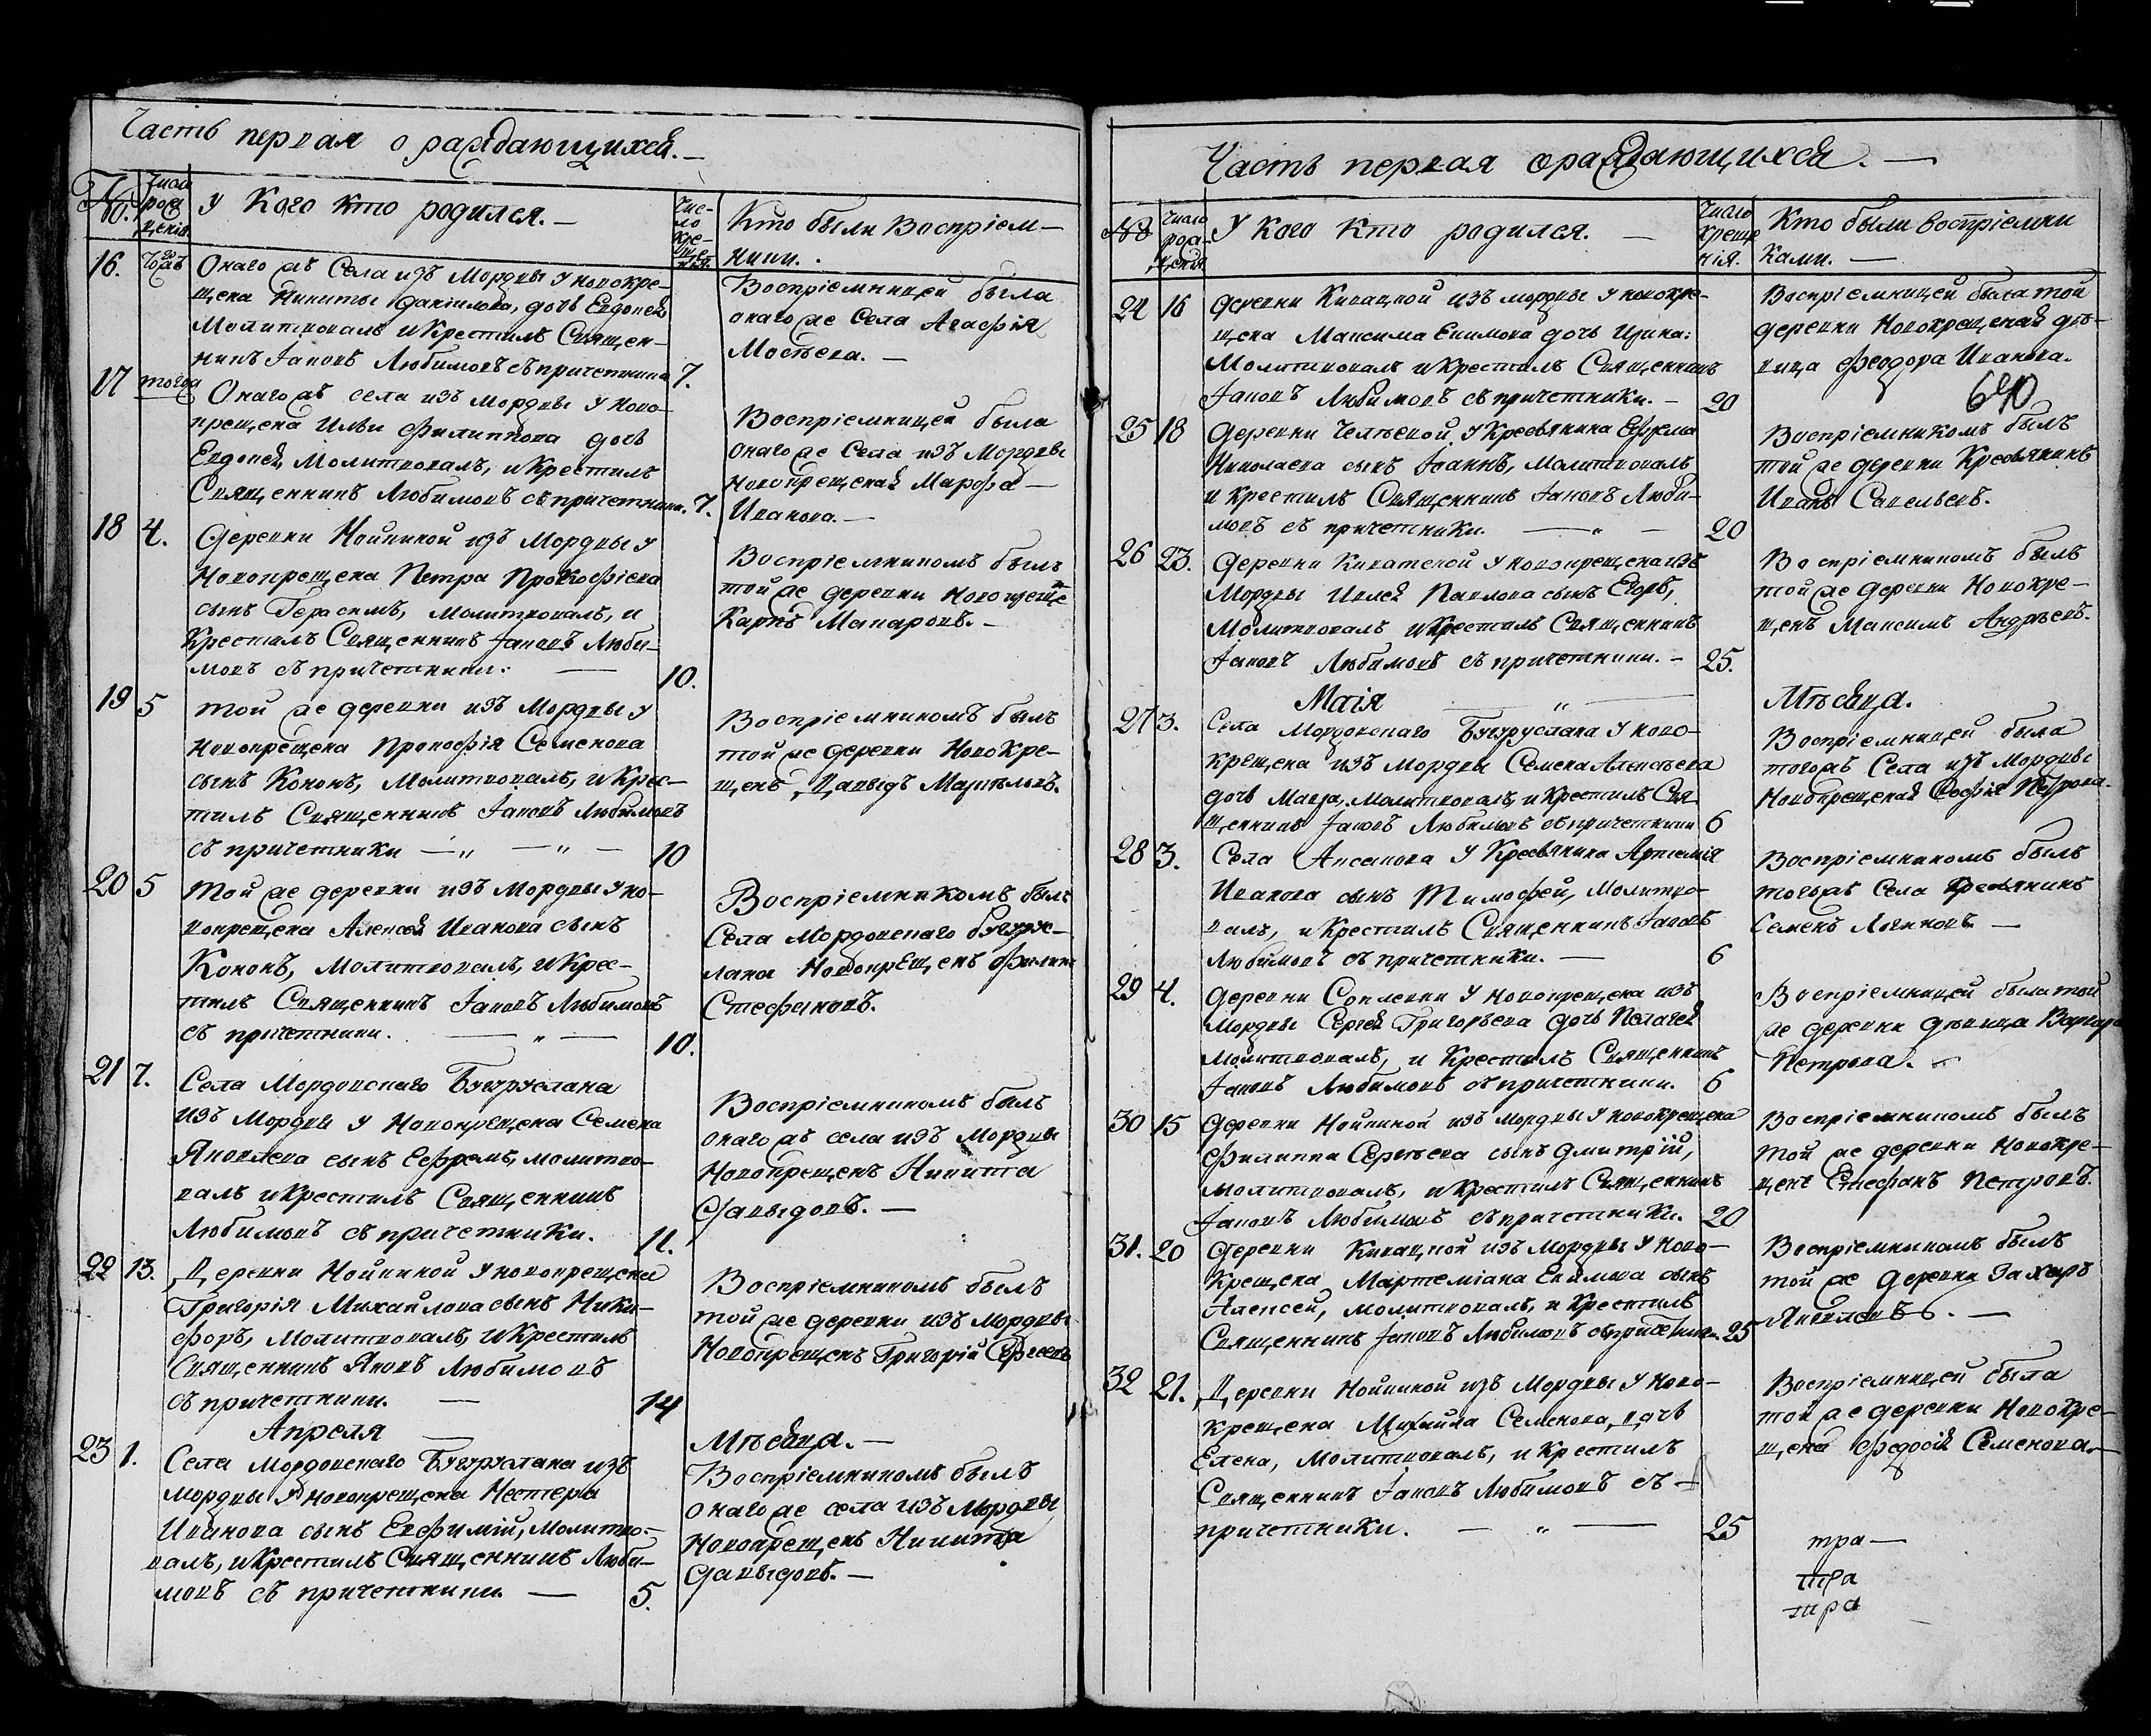 Часть первая о раждающихся.
№. Число рожденія
У Кого кто родился.
Число крещенія.
Кто были Воспріем-
ники.
16. тогожъ
Онаго жъ Села изъ Мордвы У новокре-
щена Никиты Данилова, дочь Евдокея
Молитвовалъ и Крестилъ Священ-
никъ Іаковъ Любимовъ съ причетники 7.
Воспріемницей была
онаго же Села Агафія
17 тогда
Онаго жъ села изъ Мордвы У ново-
крещена Ильи Филиппова дочь
Евдокея, Молитвовалъ, и Крестилъ
Священникъ Любимовъ съ причетники. 7.
Воспріемницей была
онаго же Села изъ Мордвы
новокрещеная Марфа
Иванова.
18 4.
Деревни Нойкиной изъ Мордвы У
Новокрещена Петра Прокофіева
сынъ Герасимъ, молитвовалъ, и
Крестилъ Священникъ Іаковъ Люби-
мовъ съ причетники. 10.
Воспріемникомъ былъ
той же деревни Новокреще
Карпъ Макаровъ.
19 5
той же деревни изъ Мордвы У
Новокрещена Прокофія Семенова
сынъ Кононъ, Молитвовалъ, и Крес-
тилъ Священникъ Іаковъ Любимовъ
съ причетники 10
Воспріемникомъ былъ
той же деревни Новокре-
щенъ, Давыдъ
20 5
Той же деревни изъ Мордвы У но-
вокрещена Алексея Иванова сынъ
Кононъ, Молитвовалъ, и Крес-
тилъ Священникъ Іаковъ Любимовъ
съ причетники. 10.
Воспріемникомъ былъ
Села Мордовскаго Бугурус-
лана Новокрещенъ Филипъ
Стефановъ.
21 7.
Села Мордовскаго Бугуруслана
изъ Мордвы У Новокрещена Семена
Яковлева сынъ Ефремъ, молитво-
валъ и Крестилъ Священникъ
Любимовъ съ причетники. 11.
Воспріемникомъ былъ
онаго жъ села изъ Мордвы
Новокрещенъ Никита
Давыдовъ.
22 13.
Деревни Нойкиной У новокрещена
Григорія Михайлова сынъ Ники-
форъ, Молитвовалъ, и Крестилъ
Священникъ Яковъ Любимовъ
съ причетники. 14
Воспріемникомъ былъ
той же деревни изъ Мордвы
Новокрещенъ Григорій Сергеевъ
Апреля Мѣсяца.
23 1.
Села Мордовскаго Бугуруслана изъ
Мордвы У Новокрещена Нестера
Иванова сынъ Евфимій, Молитво-
валъ, и Крестилъ Священникъ Люби-
мовъ съ причетники. 5.
Воспріемникомъ былъ
онаго же села изъ Мордвы
Новокрещенъ Никита
Давыдовъ.
Часть первая о раждающихся.
№ Число рожденія
У Кого Кто родился.
Число крещенія.
Кто были воспріемни
ками.
24 16
Деревни Кивацкой изъ мордвы У новокре-
щена Максима Екимова дочь Ирина:
Молитвовалъ и Крестилъ Священникъ
Іаковъ Любимовъ съ причетники. 20
Воспріемницей была той
деревни Новокрещеная дѣ-
вица Феодора Иванова.
640
25 18
Деревни У Кресьянина Ефрема
Николаева сынъ Іоаннъ, Молитвовалъ
и Крестилъ Священникъ Іаковъ Люби-
мовъ съ причетники. 20
Воспріемникомъ былъ
той же деревни Кресьянинъ
Иванъ Савельевъ.
26 23.
Деревни Киватской У новокрещена изъ
Мордвы Павлова сынъ Егоръ,
Молитвовалъ и Крестилъ Священникъ
Іаковъ Любимовъ съ причетники. 25.
Воспріемникомъ былъ
той же деревни Новокре-
щенъ Максимъ Андреевъ.
Маія Мѣсяца.
27 3.
Села Мордовскаго Бугуруслана У ново-
крещена изъ Мордвы Семена Алексѣева
дочь Мавра, Молитвовалъ, и Крестилъ Свя-
щенникъ Іаковъ Любимовъ съ причетники 6
Воспріемницей была
тогожъ Села изъ Мордвы
Новокрещеная Софія Петрова.
28 3.
Села Аксакова У Кресьянина Артемія
Иванова сынъ Тимофей, Молитво-
валъ, и Крестилъ Священникъ Іаковъ
Любимовъ съ причетники. 6
Воспріемникомъ былъ
тогожъ Села Кресьянинъ
Семенъ
29 4.
Деревни Соплевки У новокрещена изъ
Мордвы Сергея Григорьева дочь Пелагея
Молитвовалъ, и Крестилъ Священникъ
Іаковъ Любимовъ съ причетники. 6
Воспріемницей была той
же деревни дѣвица Варвара
Петрова.
30 15
Деревни Нойкиной изъ Мордвы У новокрещена
Филиппа Сергеева сынъ Дмитрій,
Молитвовалъ, и Крестилъ Священникъ
Іаковъ Любимовъ съ причетники. 20
Воспріемникомъ былъ
той же деревни Новокре-
щенъ Стефанъ Петровъ.
31. 20
Деревни Кивацкой изъ Мордвы У Ново-
Крещена Мартеміана Екимова сынъ
Алексей, молитвовалъ, и Крестилъ
Священникъ Іаковъ Любимовъ съ причетники 25
Воспріемникомъ былъ
той же деревни Захаръ
Яковлевъ.
32 21.
Деревни Нойкиной изъ Мордвы У Ново-
Крещена Михайла Семенова, дочь
Елена, Молитвовалъ, и Крестилъ
Священникъ Іаковъ Любимовъ съ
причетники. 25
Воспріемницей была
той же деревни Новокре-
щена Федосія Семенова.
тра
тра
тра